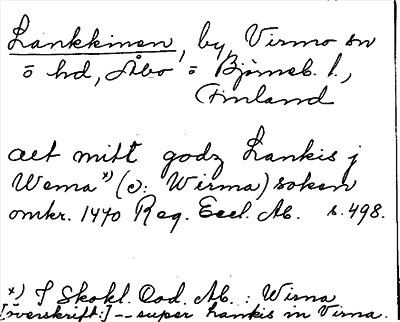 Lankkinen, by, Virmo sn
o hd, Åbo = Björneb. l.,
Finland
aet mitt godz Lankis j
Wema *) (ɔ: Wirma) soken
omkr. 1440 Reg. Eccl. Ab. s. 498.
*) I Skokl. Cod. Ab. : Wirna
[överskrift:] -- super Lankis in Virna.